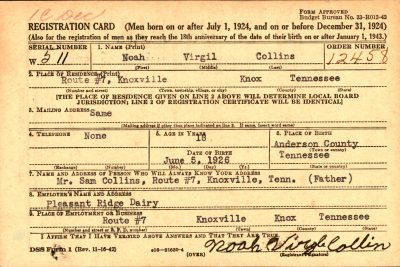 FORM APPROVED
Budget Bureau No. 33-R013-42
REGISTRATION CARD (Men born on or after July 1, 1924, and on or before December 31, 1924)
(Also for the registration of men as they reach the 18th anniversary of the date of their birth on or after January 1, 1943.)
SERIAL NUMBER 1. NAME (Print) ORDER NUMBER
W 511 Noah Virgil Collins 12458
(First) (Middle) (Last)
2. PLACE OF RESIDENCE (Print)
Route #7, Knoxville Knox Tennessee
(Number and street) (Town, township, village, or city) (County) (State)
[THE PLACE OF RESIDENCE GIVEN ON LINE 2 ABOVE WILL DETERMINE LOCAL BOARD
JURISDICTION; LINE 2 OF REGISTRATION CERTIFICATE WILL BE IDENTICAL]
3. MAILING ADDRESS
Same
(Mailing address if other than place indicated on line 2. If same, insert word same)
4. TELEPHONE 5. AGE IN YEARS 6. PLACE OF BIRTH
None 18 Anderson County
DATE OF BIRTH Tennessee
June 5, 1926
(Exchange) (Number) (Mo.) (Day) (Yr.) (State or country)
7. NAME AND ADDRESS OF PERSON WHO WILL ALWAYS KNOW YOUR ADDRESS
Mr. Sam Collins, Route #7, Knoxville, Tenn. (Father)
8. EMPLOYER'S NAME AND ADDRESS
Pleasant Ridge Dairy
9. PLACE OF EMPLOYMENT OR BUSINESS
Route #7 Knoxville Knox Tennessee
(Number and street or R. F. D. number) (Town) (County) (State)
I AFFIRM THAT I HAVE VERIFIED ABOVE ANSWERS AND THAT THEY ARE TRUE.
DSS Form 1 (Rev. 11-16-42) (OVER) Noah Virgle Collin
(Registrant's signature)